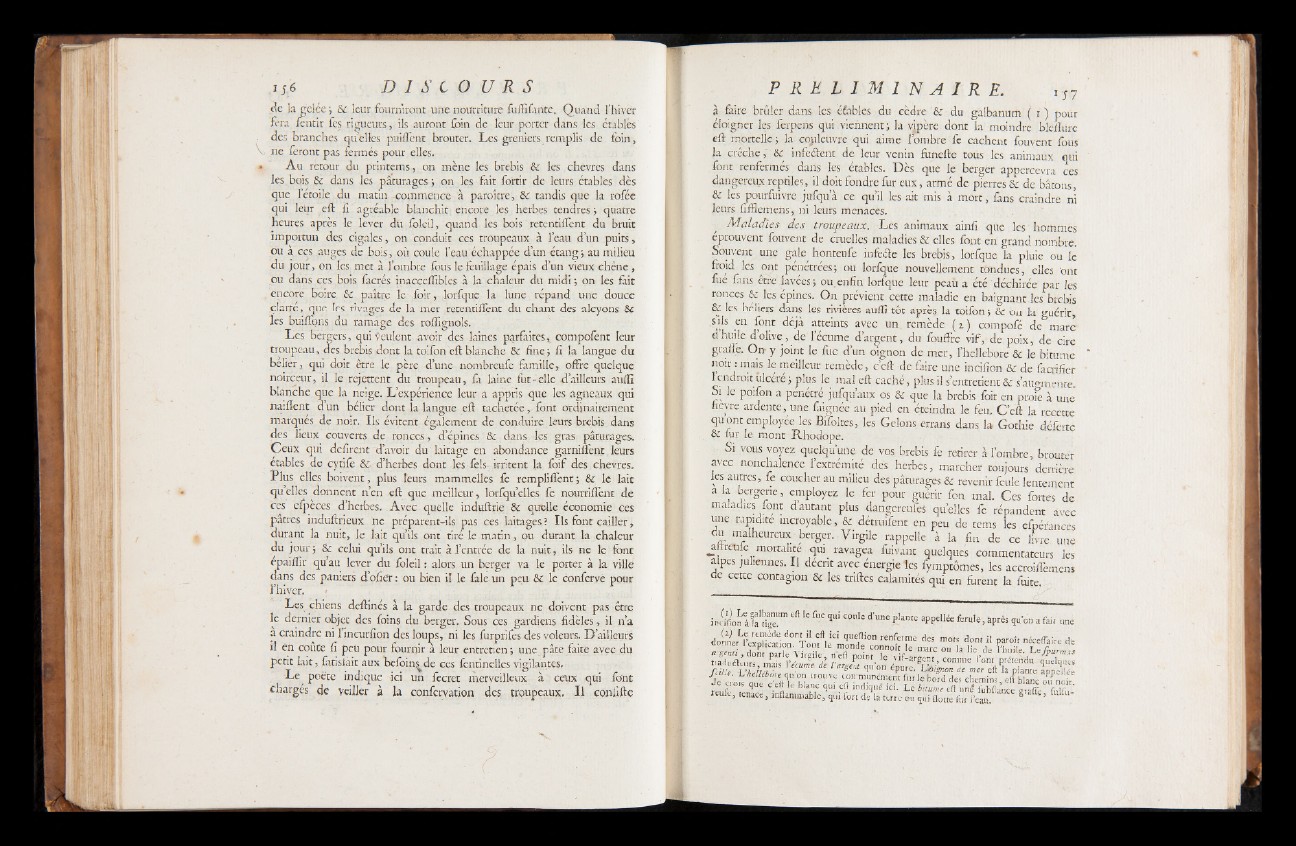 156 DISCOURS
de la gelée ; & leur fourniront une nourriture ſuffiſante. Quand l'hiver
ſera ſentir ſes rigueurs, ils auront ſoin de leur porter dans les étables
des branches qu'elles puiſſent brouter. Les greniers remplis de foin,
ne ſeront pas fermés pour elles.
Au retour du printems, on mène les brebis & les chevres dans
les bois & dans les pâturages ; on les fait ſortir de leurs étables dès
que l'étoile du matin commence à paroître, & tandis que la roſée
qui leur eſt ſi agréable blanchit encore les herbes tendres ; quatre
heures après le lever du ſoleil, quand les bois retentiſſent du bruit
importun des cigales, on conduit ces troupeaux à l'eau d'un puits,
ou à ces auges de bois, où coule l'eau échappée d'un étang ; au milieu
du jour, on les met à l'ombre ſous le feuillage épais d'un vieux chêne,
ou dans ces bois ſacrés inacceſſibles à la chaleur du midi ; on les fait
encore boire & paître le ſoir, lorſque la lune répand une douce
clarté, que les rivages de la mer retentiſſent du chant des alcyons &
les buiſſons du ramage des roſſignols.
Les bergers, qui veulent avoir des laines parfaites, compoſent leur
troupeau, des brebis dont la toiſon eſt blanche & fine ; ſi la langue du
bélier, qui doit être le père d'une nombreuſe famille, offre quelque
noirceur, il le rejettent du troupeau, ſa laine fût-elle d'ailleurs auſſi
blanche que la neige. L'expérience leur a appris que les agneaux qui
naiſſent d'un bélier dont la langue eſt tachetée, ſont ordinairement
marqués de noir. Ils évitent également de conduire leurs brebis dans
des lieux couverts de ronces, d'épines & dans les gras pâturages.
Ceux qui deſirent d'avoir du laitage en abondance garniſſent leurs
étables de cytiſe & d'herbes dont les ſels irritent la ſoif des chevres.
Plus elles boivent, plus leurs mammelles ſe rempliſſent ; & le lait
qu'elles donnent n'en eſt que meilleur, lorſqu'elles ſe nourriſſent de
ces eſpèces d'herbes. Avec quelle induſtrie & quelle économie ces
pâtres induſtrieux ne préparent-ils pas ces laitages ? Ils font cailler,
durant la nuit, le lait qu'ils ont tiré le matin, ou durant la chaleur
du jour ; & celui qu'ils ont trait à l'entrée de la nuit, ils ne le font
épaiſſir qu'au lever du ſoleil : alors un berger va le porter à la ville
dans des paniers d'oſier : ou bien il le ſale un peu & le conſerve pour
l'hiver.
Les chiens deſtinés à la garde des troupeaux ne doivent pas être
le dernier objet des ſoins du berger. Sous ces gardiens fidèles, il n'a
à craindre ni l'incurſion des loups, ni les ſurpriſes des voleurs. D'ailleurs
il en coûte ſi peu pour fournir à leur entretien ; une pâte faite avec du
petit lait, ſatisfait aux beſoins de ces ſentinelles vigilantes.
Le poëte indique ici un ſecret merveilleux à ceux qui ſont
chargés de veiller à la conſervation des troupeaux. Il conſiſte
PRÉLIMINAIRE. 157
à faire brûler dans les étables du cèdre & du galbanum ( 1 ) pour
éloigner les ſerpens qui viennent ; la vipère dont la moindre bleſſure
eſt mortelle ; la couleuvre qui aime l'ombre ſe cachent ſouvent ſous
la crèche, & infectent de leur venin funeſte tous les animaux qui
ſont renfermés dans les étables. Dès que le berger appercevra ces
dangereux reptiles, il doit fondre ſur eux, armé de pierres & de bâtons,
& les pourſuivre juſqu'à ce qu'il les ait mis à mort, ſans craindre ni
leurs ſifflemens, ni leurs menaces.
Maladies des troupeaux. Les animaux ainſi que les hommes
éprouvent ſouvent de cruelles maladies & elles ſont en grand nombre.
Souvent une gale honteuſe infecte les brebis, lorſque la pluie ou le
froid les ont pénétrées ; ou lorſque nouvellement tondues, elles ont
ſué ſans être lavées ; ou enfin lorſque leur peau a été déchirée par les
ronces & les épines. On prévient cette maladie en baignant les brebis
& les béliers dans les rivières auſſi tôt après la toiſon ; & on la guérit,
s'ils en ſont déjà atteints avec un remède ( 2 ) compoſé de marc
d'huile d'olive, de l'écume d'argent, du ſouffre vif, de poix, de cire
graſſe. On y joint le ſuc d'un oignon de mer, l'hellebore & le bitume
noir : mais le meilleur remède, c'eſt de faire une inciſion & de ſacrifier
l'endroit ulcéré ; plus le mal eſt caché, plus il s'entretient & s'augmente.
Si le poiſon a pénétré juſqu'aux os & que la brebis ſoit en proie à une
fièvre ardente, une ſaignée au pied en éteindra le feu. C'eſt la recette
qu'ont employée les Biſoltes, les Gelons errans dans la Gothie déſerte
& ſur le mont Rhodope.
Si vous voyez quelqu'une de vos brebis ſe retirer à l'ombre, brouter
avec nonchalence l'extrémité des herbes, marcher toujours derrière
les autres, ſe coucher au milieu des pâturages & revenir ſeule lentement
à la bergerie, employez le fer pour guérir ſon mal. Ces ſortes de
maladies ſont d'autant plus dangereuſes qu'elles ſe répandent avec
une rapidité incroyable, & détruiſent en peu de tems les eſpérances
du malheureux berger. Virgile rappelle à la fin de ce livre une
affreuſe mortalité qui ravagea ſuivant quelques commentateurs les
alpes juliennes. Il décrit avec énergie les ſymptômes, les accroiſſemens
de cette contagion & les triſtes calamités qui en furent la ſuite.
(1) Le galbanum eſt le ſuc qui coule d'une plante appellée ferule, après qu'on a fait une
inciſion à la tige.
(2) Le remède dont il eſt ici queſtion renferme des mots dont il paroît néceſſaire de
donner l'explication. Tout le monde connoît le marc ou la lie de l'huile. Le ſpumas
argenti, dont parle Virgile, n'eſt point le vif-argent, comme l'ont prétendu quelques
traducteurs, mais l'écume de l'argent qu'on épure. L'oignon de mer eſt la plante appellée
ſcille. L'hellébore qu'on trouve communément ſur le bord des chemins, eſt blanc ou noir.
Je crois que c'eſt le blanc qui eſt indiqué ici. Le bitume eſt une ſubſtance graſſe, ſulfu-
reuſe, tenace, inflammable, qui ſort de la terre ou qui flotte ſur l'eau.